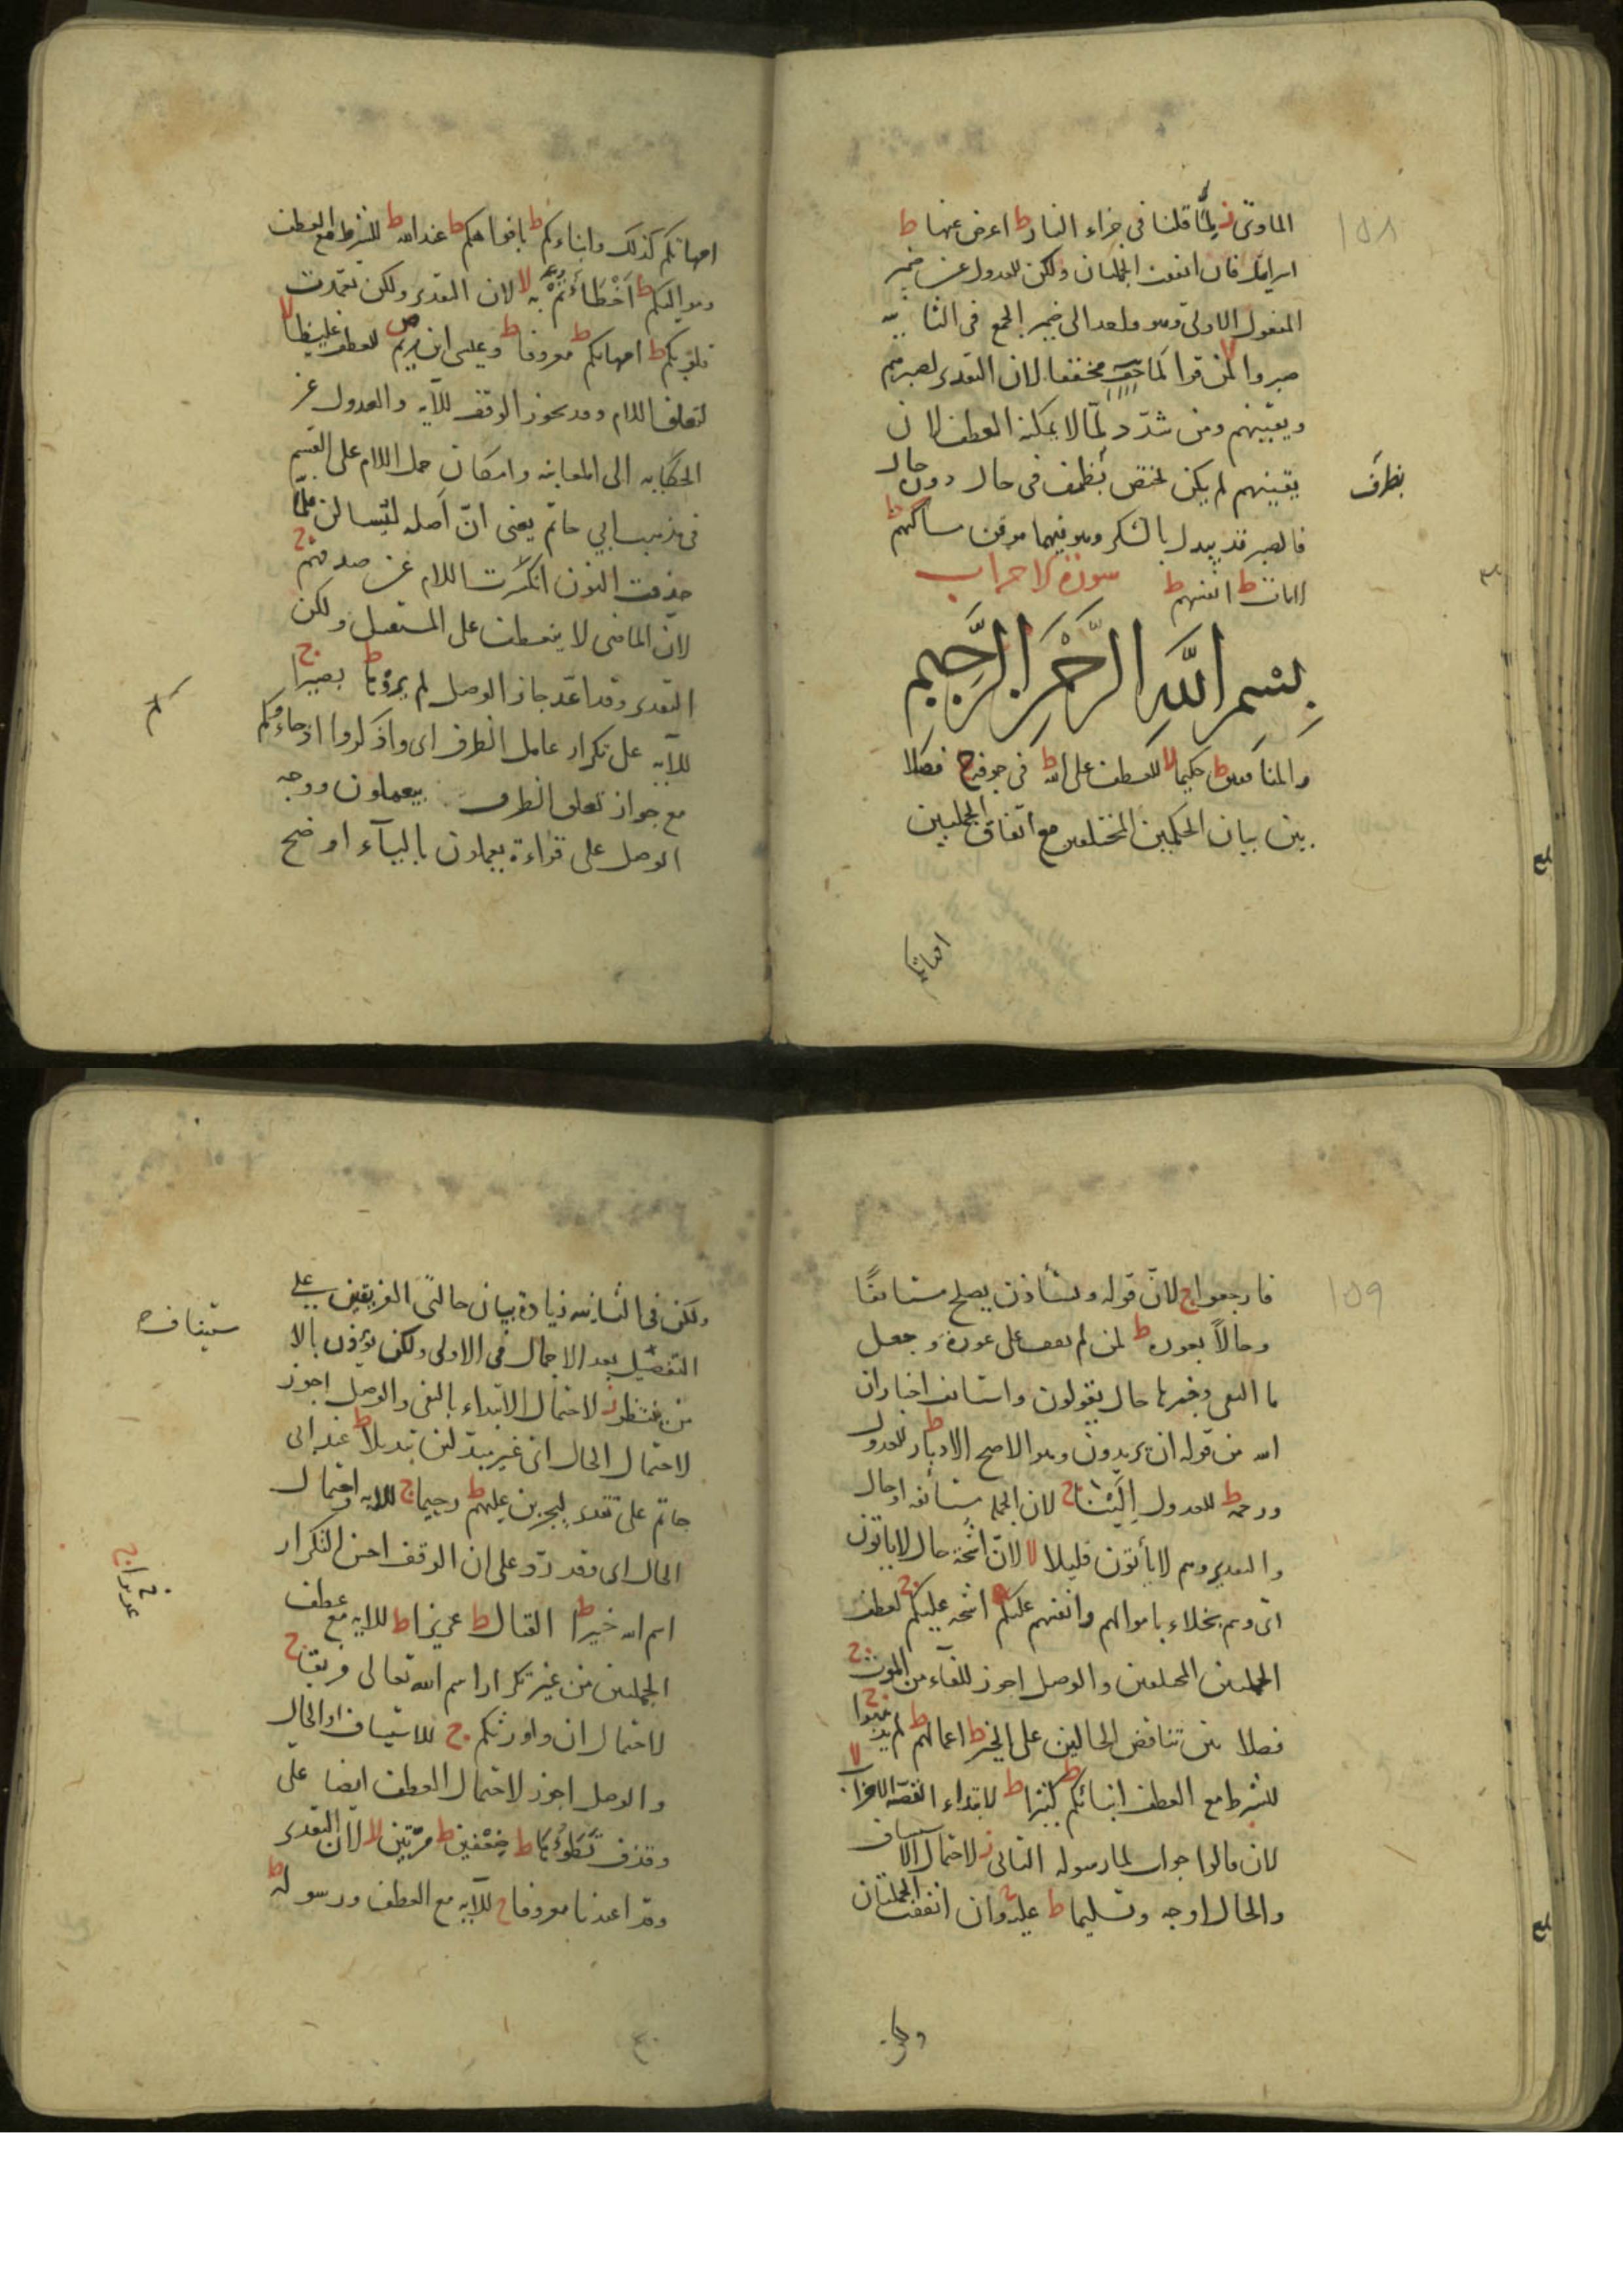 ١٥٨
الماوى ز لما قلنا فى جزاء النار ط اعرض عنها ط
اسرائل فان اتفقت الجملتان ولكن للعدول عن ضمير
المفعول الاولى وهو واحد الى ضمير الجمع فى الثانيه
صبروا لا لمن قرا لما مخففا لان التقدير لصبرهم
ويقينهم ومن شدد لما لا يمكنه العطف لان
يقينهم لم يكن لمختص بظرف فى حال دون حال
بظرف
فالصبر قد يبدل بالشكر وهو فيهما موقن مساكنهم ط
لايات ط انفسهم ط سورة الاحزاب
بسم الله الرحمن الرحيم
والمنافقين ط حكيما لا للعطف على اتق الله ط فى جوفه ج فصلا
بين بيان الحكمين المختلفين مع اتفاق الجملتين
امهاتكم
امهاتكم كذلك وابناءكم ط بافواهكم ط عند الله ط للشرط مع العطف
ومواليكم ط اخطأتم به لا لان التقدير ولكن تعمدت
قلوبكم ط امهاتكم ط معروفا ط وعيسى ابن مريم ص للعطف غليظا لا
لتعلق اللام وقد يجوز الوقف للآيه والعدول عن
الحكايه الى المعاينه وامكان حمل اللام على القسم
فى مذهب ابي حاتم يعنى ان اصله ليسالن فلما
حذفت النون انكسرت اللام عن صدقهم ج
لان الماضى لا ينعطف على المستقبل ولكن
التقدير وقد اعد جاز الوصل لم تروها ط بصيرا ج
للآيه على تكرار عامل الظرف اى واذكروا اذ جاءوكم
مع جواز تعلق الظرف بيعملون ووجه
الوصل على قراءة يعملون بالياء اوضح
١٥٩
فارجعوا ج لان قوله ويستأذن يصلح مستانفا
وحالا بعورة ط لمن لم يقف على عورة وجعل
ما النفى وخبرها حال يقولون واستانف اخبار ان
الله من قوله ان يريدون وهو الاصح الادبار ط للعدول
ورحمة ط للعدول الينا ج لان الجمله مستأنفه او حال
والتقدير وهم لا يأتون قليلا لا لان اشحة حال لا ياتون
اى وهم بخلاء باموالهم وانفسهم عليكم اشحه عليكم ج لعطف
الجملتين المختلفتين والوصل اجوز للفاء من الموت ج
فصلا بين تناقض الحالين على الخير ط اعمالهم ط لم يذهبوا ج
للشرط مع العطف انبائكم ط كثيرا ط لابتداء القصة الاحزاب لا
لان قالوا جواب لما ورسوله الثانى ز لاحتمال الاستيناف
والحال اوجه وتسليما ط عليه ج وان اتفقت الجملتان
ولكن
ولكن فى الثانيه زيادة بيان حالتى الفريقين على
التفصيل بعد الاجمال فى الاولى ولكن يؤذن بالا
ستيناف
من ينتظر ز لاحتمال الابتداء بالنفى والوصل اجوز
لاحتمال الحال اى غير مبدلين تبديلا ط عند ابى
حاتم على تقدير ليجزين عليهم ط رحيما ج للايه واحتمال
الحال اى وقد رد وعلى ان الوقف احسن لتكرار
اسم الله خيرا ط القتال ط عزيزا ط للايه مع عطف
عزيزا ج
الجملتين من غير تكرار اسم الله تعالى فريقا ج
لاحتمال ان واورثكم ج للاستيناف او الحال
والوصل اجوز لاحتمال العطف ايضا على
وقذف تطؤوها ط ضعفين ط مرتين لا لان التقدير
وقد اعتدنا معروفا ج للآيه مع العطف ورسوله ط